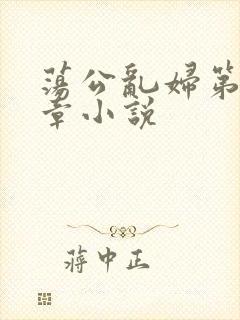 蕩公亂婦第
章小説
蔣中正